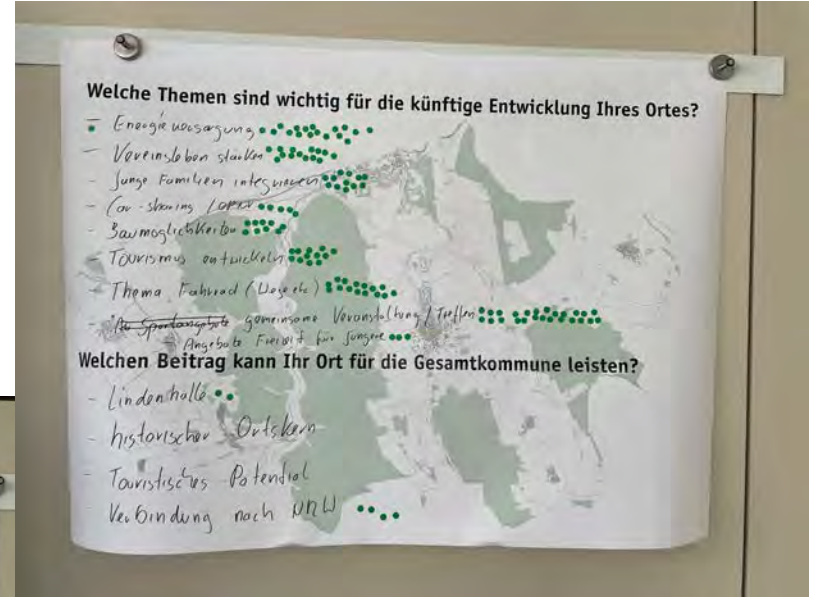 Welche Themen sind wichtig für die künftige Entwicklung Ihres Ortes?
- Energieversorgung
- Vereinsleben stärken
- Junge Familien integrieren
- Car-sharing
- Baumöglichkeiten
- Tourismus entwickeln
- Thema Fahrrad (Wege etc)
- gemeinsame Veranstaltung / Treffen
- Angebote Freizeit für Jüngere
Welchen Beitrag kann Ihr Ort für die Gesamtkommune leisten?
- Lindenhalle
- historischer Ortskern
- Touristisches Potential
- Verbindung nach NRW